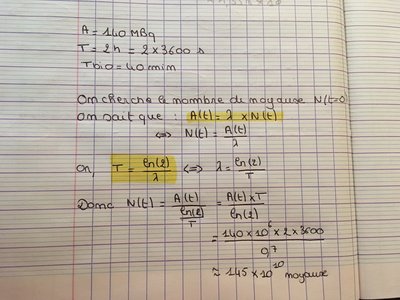 A = 140 MBq
T = 2h = 2 × 3600 s
Tbio = 40 min
On cherche le nombre de noyaux N(t=0)
On sait que : A(t) = λ × N(t)
⇔ N(t) = A(t)/λ
Or, T = ln(2)/λ ⇔ λ = ln(2)/T
Donc N(t) = A(t)/(ln(2)/T) = A(t)×T/ln(2)
= 140 × 10^6 × 2 × 3600/0,7
≈ 145 × 10^10 noyaux